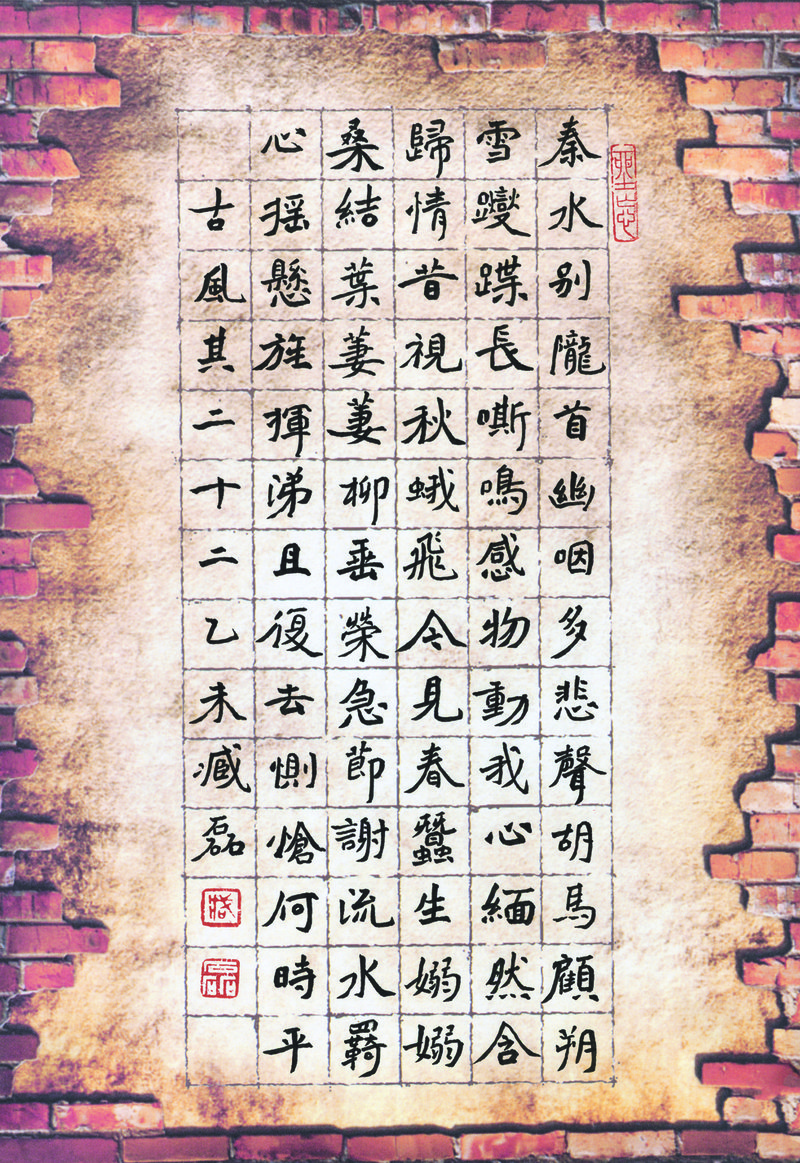 秦水别隴首幽咽多悲聲胡馬顧朔
雪躞蹀長嘶鳴感物動我心緬然含
歸情昔視秋蛾飛今見春蠶生嫋嫋
桑結葉萋萋柳垂榮急節謝流水羈
心摇懸旌揮涕且復去惻愴何時平
古風其二十二乙未臧磊
臧
磊